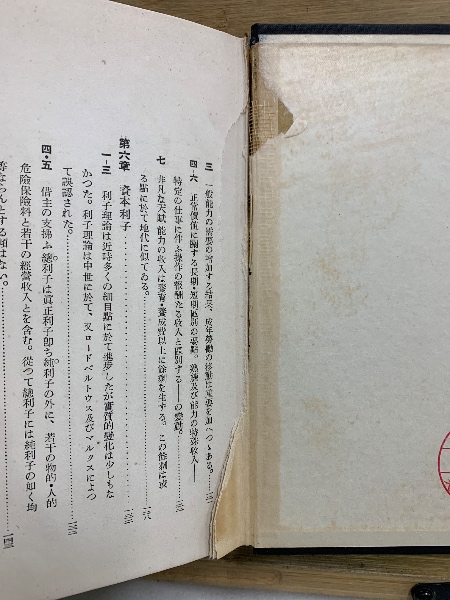 三 一般能力の需要の増加する結果、成年勞働の移動は重要を加へつゝある。
四・六 正常價値に關する長期・短期區別の要點。熟練及び能力の特殊收入――
特定の仕事に伴ふ操作の報酬たる收入と區別する――の變動。
七 非凡な天賦能力の收入は養育・養成費以上に餘剩を生ずる。この餘剩は或
る點に於て地代に似てゐる。
第六章 資本利子
一―三 利子理論は近時多くの細目點に於て進步したが實質的變化は少しもな
かつた。利子理論は中世に於て、又ロードベルトウス及びマルクスによつ
て誤認された。
四・五 借主の支拂ふ總利子は眞正利子卽ち純利子の外に、若干の物的・人的
危險保險料と若干の經營收入とを含む。從つて總利子には純利子の如く均
等ならんとする傾はない。